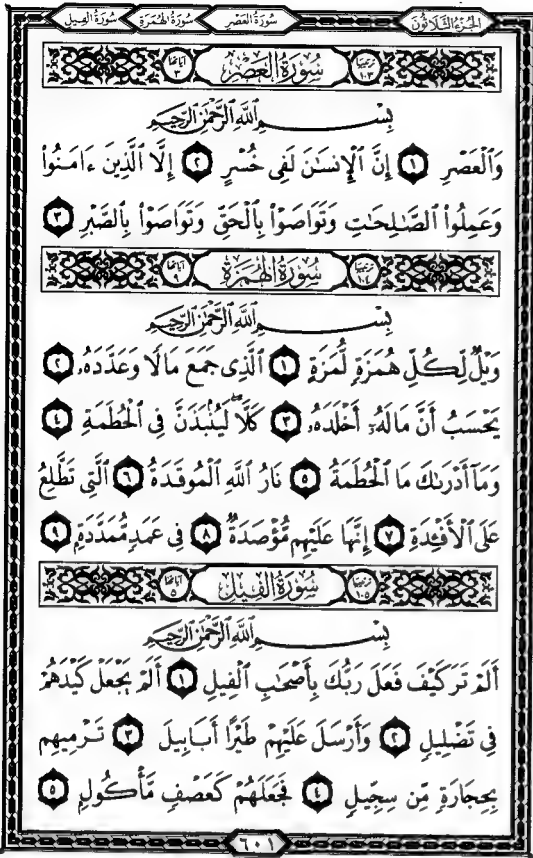 الجزء الثلاثون سورة العصر سورة الهمزة سورة الفيل
ترتيبها ١٠٣ سورة العصر آياتها ٣
بِسْمِ اللَّهِ الرَّحْمَٰنِ الرَّحِيمِ
وَالْعَصْرِ ١ إِنَّ الْإِنسَٰنَ لَفِى خُسْرٍ ٢ إِلَّا الَّذِينَ ءَامَنُوا
وَعَمِلُوا الصَّٰلِحَٰتِ وَتَوَاصَوْا بِالْحَقِّ وَتَوَاصَوْا بِالصَّبْرِ ٣
ترتيبها ١٠٤ سورة الهمزة آياتها ٩
بِسْمِ اللَّهِ الرَّحْمَٰنِ الرَّحِيمِ
وَيْلٌ لِّكُلِّ هُمَزَةٍ لُّمَزَةٍ ١ الَّذِى جَمَعَ مَالًا وَعَدَّدَهُۥ ٢
يَحْسَبُ أَنَّ مَالَهُۥٓ أَخْلَدَهُۥ ٣ كَلَّاۖ لَيُنۢبَذَنَّ فِى الْحُطَمَةِ ٤
وَمَآ أَدْرَىٰكَ مَا الْحُطَمَةُ ٥ نَارُ اللَّهِ الْمُوقَدَةُ ٦ الَّتِى تَطَّلِعُ
عَلَى الْأَفْـِٔدَةِ ٧ إِنَّهَا عَلَيْهِم مُّؤْصَدَةٌ ٨ فِى عَمَدٍ مُّمَدَّدَةٍۭ ٩
ترتيبها ١٠٥ سورة الفيل آياتها ٥
بِسْمِ اللَّهِ الرَّحْمَٰنِ الرَّحِيمِ
أَلَمْ تَرَ كَيْفَ فَعَلَ رَبُّكَ بِأَصْحَٰبِ الْفِيلِ ١ أَلَمْ يَجْعَلْ كَيْدَهُمْ
فِى تَضْلِيلٍ ٢ وَأَرْسَلَ عَلَيْهِمْ طَيْرًا أَبَابِيلَ ٣ تَرْمِيهِم
بِحِجَارَةٍ مِّن سِجِّيلٍ ٤ فَجَعَلَهُمْ كَعَصْفٍ مَّأْكُولٍۭ ٥
٦٠١